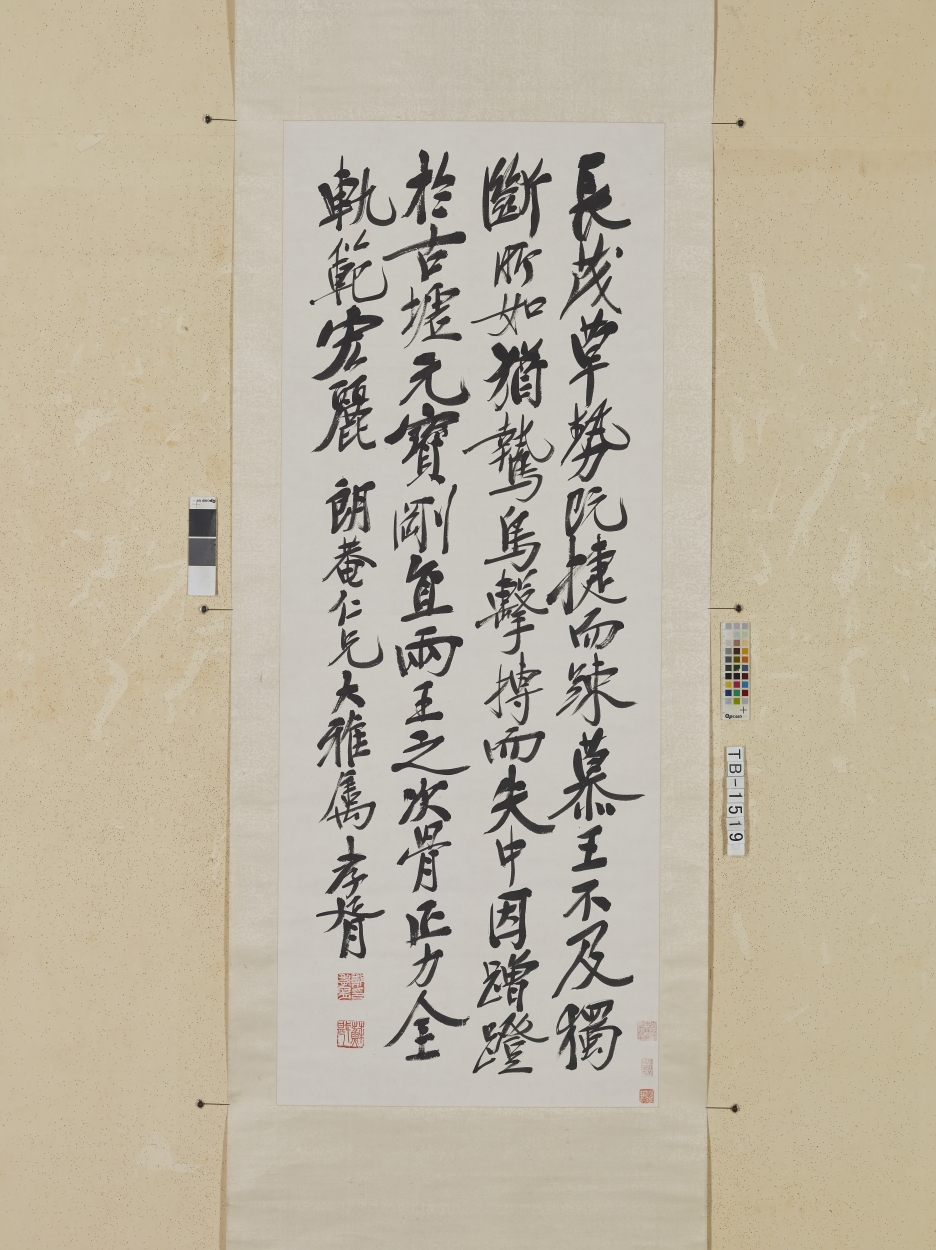 長茂草勢既捷而踈慕王不及獨
斷所如猶鷙鳥擊搏而失中因蹭蹬
於古墟元寶剛直兩王之次骨正力全
軌範宏麗 朗菴仁兄大雅屬 孝胥
TB-1519